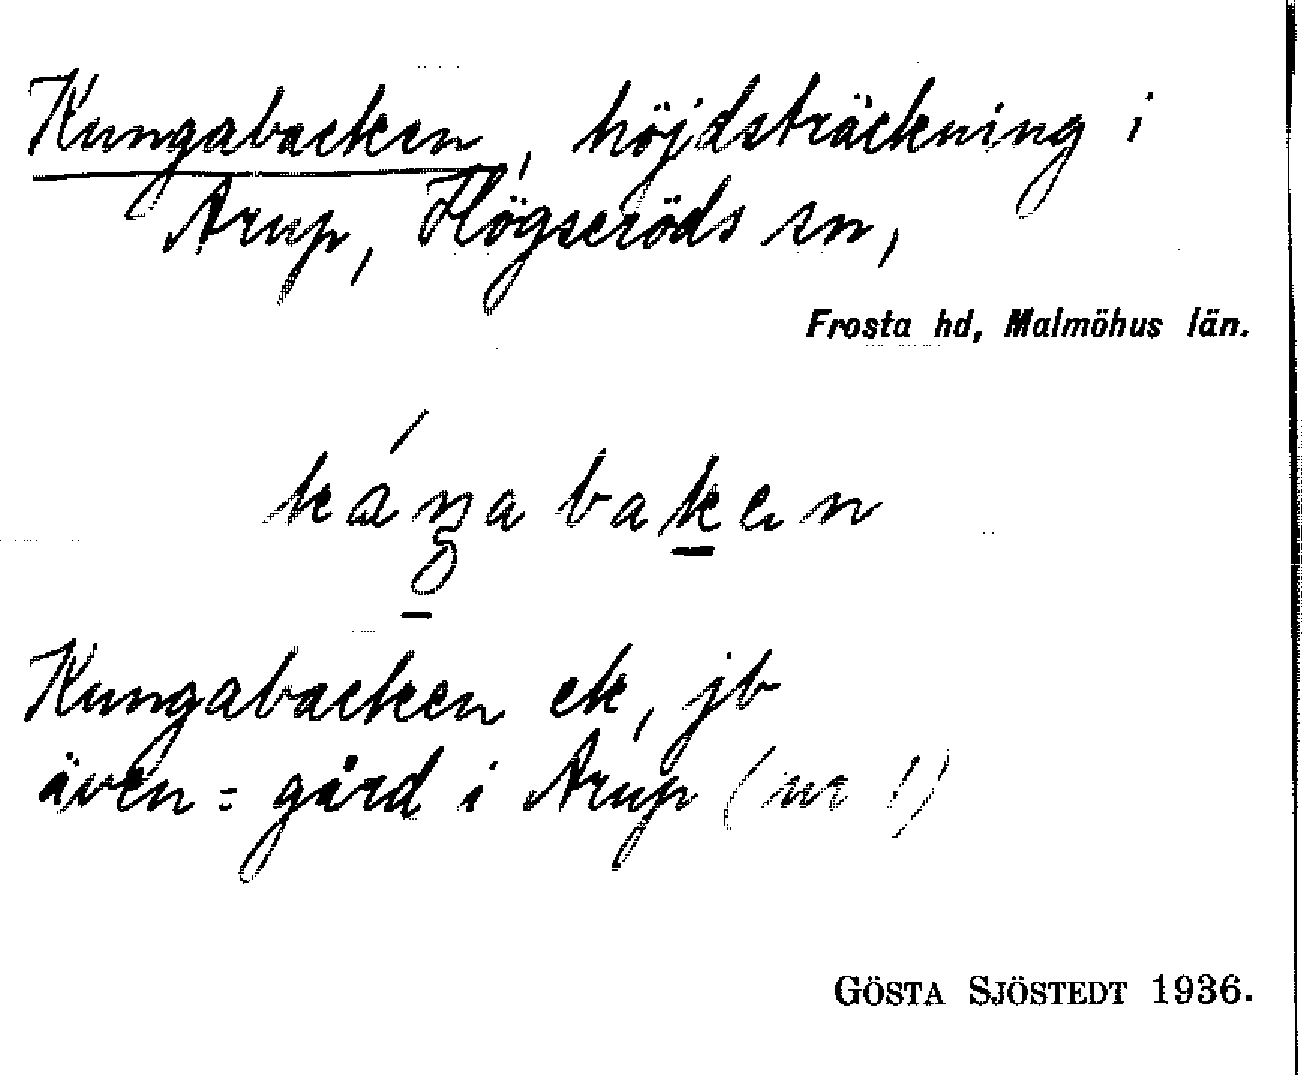 Kungabacken, höjdsträckning i
Arup, Högseröds sn,
Frosta hd, Malmöhus län.
Kungabacken ek, jb
även = gård i Arup (nr 1)
GÖSTA SJÖSTEDT 1936.